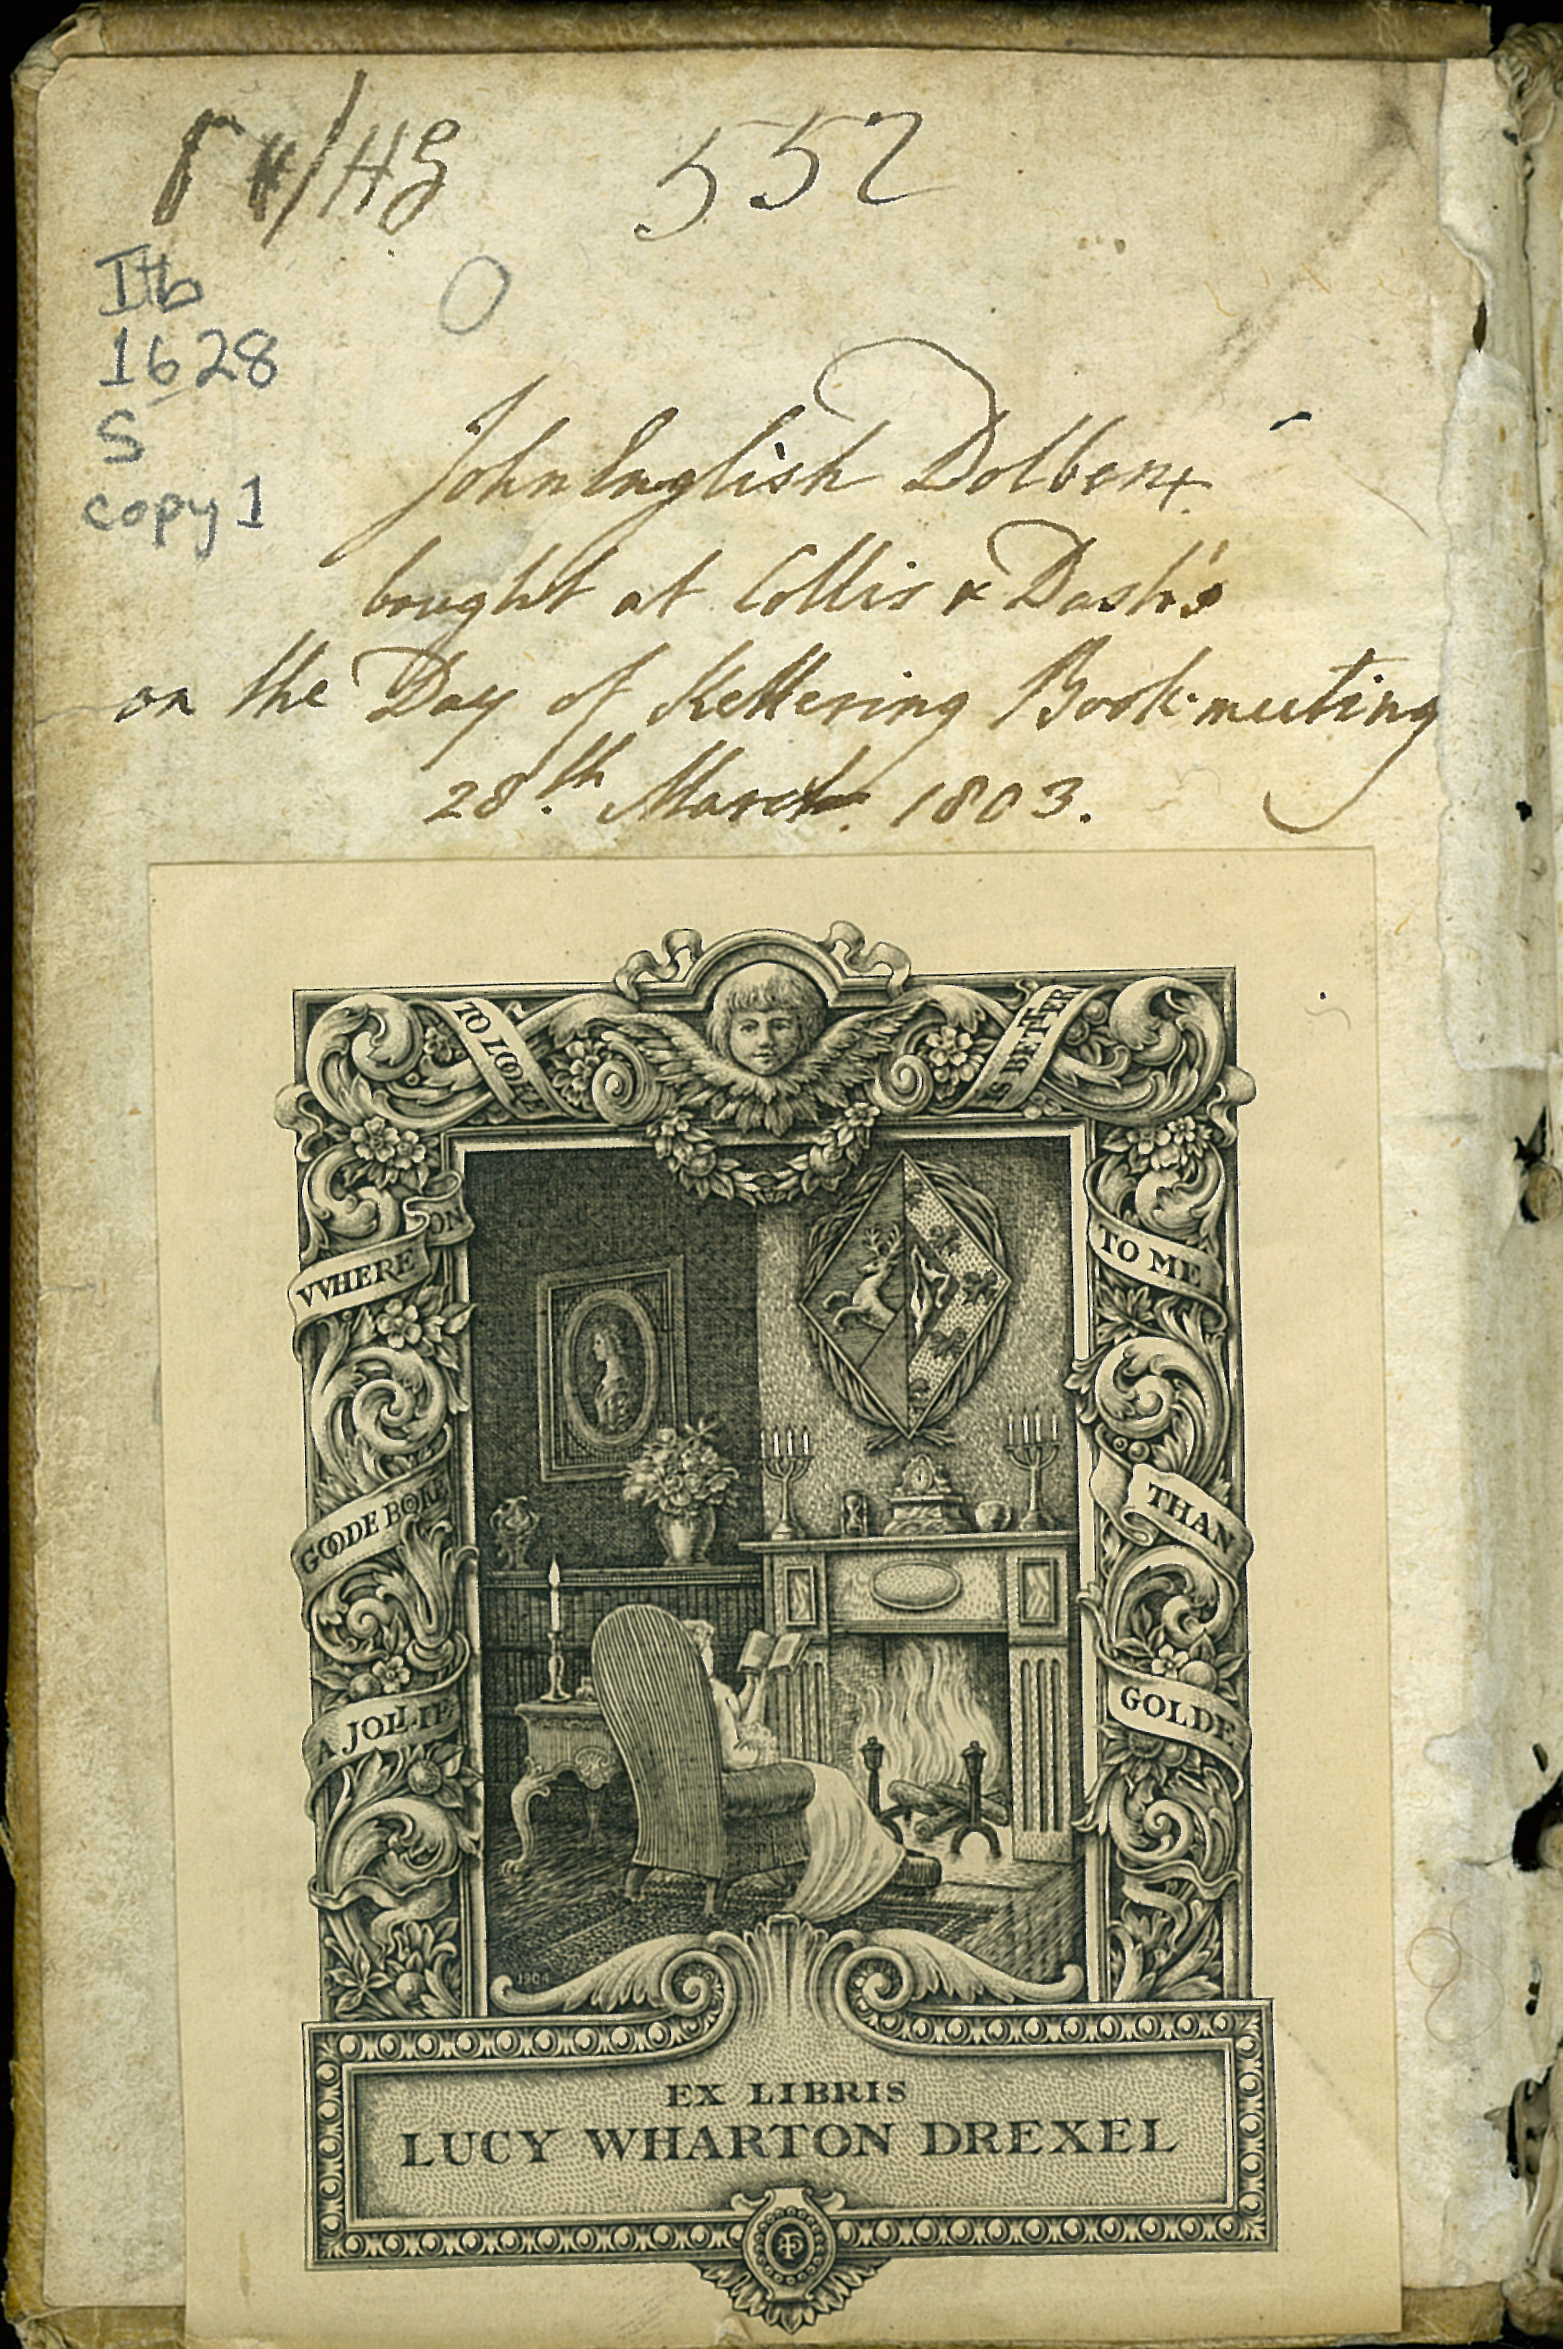 552
O
Itb
1628
S
copy 1
John English Dolben+.
bought at Collis & Dash's
on the Day of Kettering Book-meeting
28.th March. 1803.
VVHERE ON
TO LOOKE
IS BETTER
TO ME
GOODE BOKE
THAN
A JOLLIE
GOLDE
1904
EX LIBRIS
LUCY WHARTON DREXEL